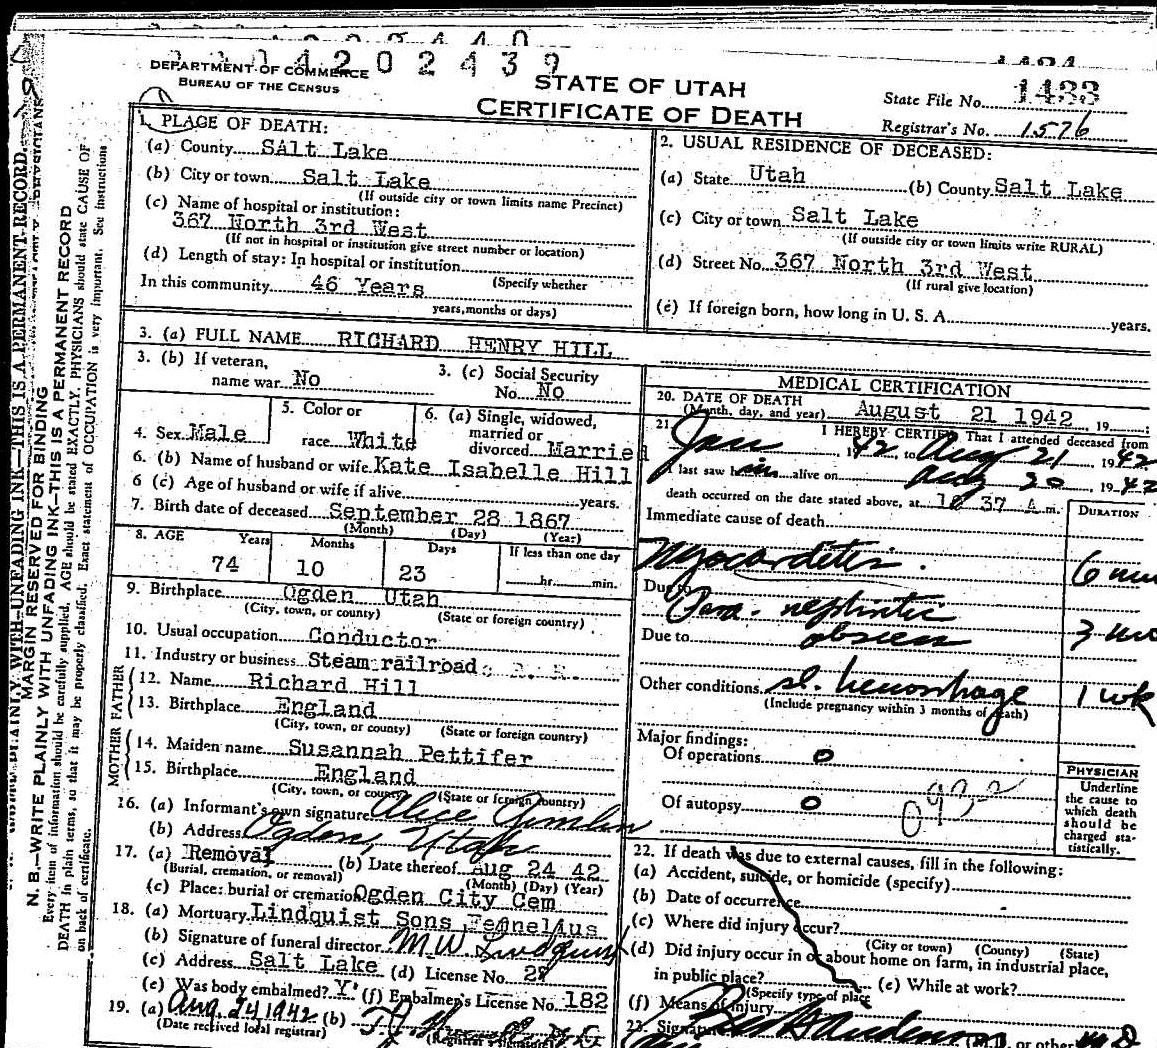 2 0 4 2 0 2 4 3 9
DEPARTMENT OF COMMERCE
BUREAU OF THE CENSUS
STATE OF UTAH
CERTIFICATE OF DEATH
State File No. 1433
Registrar's No. 1576
1. PLACE OF DEATH:
(a) County SAlt Lake
(b) City or town Salt Lake
(If outside city or town limits name Precinct)
(c) Name of hospital or institution:
367 North 3rd West
(If not in hospital or institution give street number or location)
(d) Length of stay: In hospital or institution
In this community 46 Years (Specify whether
years, months or days)
2. USUAL RESIDENCE OF DECEASED:
(a) State Utah (b) County Salt Lake
(c) City or town Salt Lake
(If outside city or town limits write RURAL)
(d) Street No. 367 North 3rd West
(If rural give location)
(e) If foreign born, how long in U. S. A. years.
3. (a) FULL NAME RICHARD HENRY HILL
3. (b) If veteran,
name war No
3. (c) Social Security
No. No
4. Sex Male
5. Color or
race White
6. (a) Single, widowed,
married or
divorced Married
6. (b) Name of husband or wife Kate Isabelle Hill
6 (c) Age of husband or wife if alive years.
7. Birth date of deceased September 28 1867
(Month) (Day) (Year)
8. AGE Years Months Days If less than one day
74 10 23 hr. min.
9. Birthplace Ogden Utah
(City, town, or county) (State or foreign country)
10. Usual occupation Conductor
11. Industry or business Steam railroad
FATHER
12. Name Richard Hill
13. Birthplace England
(City, town, or county) (State or foreign country)
MOTHER
14. Maiden name Susannah Pettifer
15. Birthplace England
(City, town, or county) (State or foreign country)
16. (a) Informant's own signature Alice
(b) Address Ogden, Utah
17. (a) Removal (b) Date thereof Aug 24 42
(Burial, cremation, or removal) (Month) (Day) (Year)
(c) Place: burial or cremation Ogden City Cem
18. (a) Mortuary Lindquist Sons
(b) Signature of funeral director M.W. Lindquist
(c) Address Salt Lake (d) License No. 28
(e) Was body embalmed? Y (f) Embalmer's License No. 182
19. (a) Aug. 24 1942 (b)
(Date received local registrar) (Registrar's signature)
MEDICAL CERTIFICATION
20. DATE OF DEATH
(Month, day, and year) August 21 1942 19
21. I HEREBY CERTIFY That I attended deceased from
Jan 1942 to Aug 21 1942
I last saw him alive on Aug 20 1942
death occurred on the date stated above, at 10 37 A m.
DURATION
Immediate cause of death
Myocarditis. 6
Due to Para. nephritic 
Due to absess 3
Other conditions sl. hemorrhage 1 wk
(Include pregnancy within 3 months of death)
Major findings:
Of operations 0
Of autopsy 0
093-2
PHYSICIAN
Underline
the cause to
which death
should be
charged sta-
tistically.
22. If death was due to external causes, fill in the following:
(a) Accident, suicide, or homicide (specify)
(b) Date of occurrence
(c) Where did injury occur?
(City or town) (County) (State)
(d) Did injury occur in or about home on farm, in industrial place,
in public place? (e) While at work?
(Specify type of place)
(f) Means of injury
23. Signature Anderson (M.D. or other) M D
N. B.—WRITE PLAINLY WITH UNFADING INK—THIS IS A PERMANENT RECORD
MARGIN RESERVED FOR BINDING
WITH UNFADING INK—THIS IS A PERMANENT RECORD.
Every item of information should be carefully supplied. AGE should be stated EXACTLY. PHYSICIANS should state CAUSE OF
DEATH in plain terms, so that it may be properly classified. Exact statement of OCCUPATION is very important. See instructions
on back of certificate.